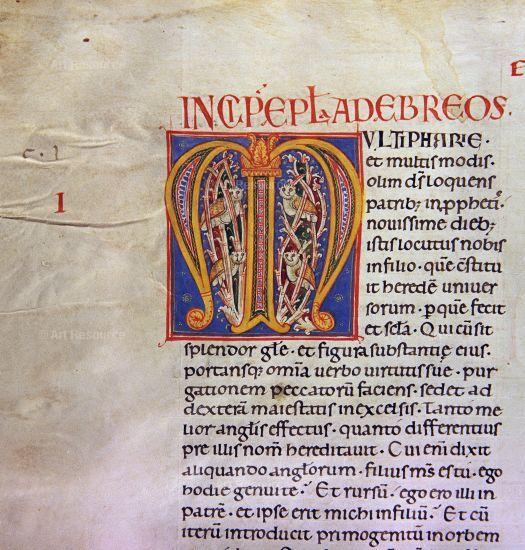 INCIP̄ EPLA AD EBREOS.
E
c. 1
I
M
VLTIPHARIE.
et multis modis.
olim dſ loquens
patribꝫ inppheti
novissime diebꝫ
istis locutus nobis
infilio. que c̄stitu
it heredē univer
sorum. p que fecit
et sc̄la. Qui cūsit
splendor gl̄e. et figura substantię eius.
portansqꝫ om̄ia verbo virtutis sue. pur
gationem peccatorū faciens. sedet ad
dexterā maiestatis in excelsis. Tanto me
lior angl̄is effectus. quanto differentius
pre illis nom̄ hereditavit. Cui eni dixit
aliquando anglorum. filius m̄s es tu. ego
hodie genui te. Et rursū. ego ero illi in
patrē. et ipse erit michi infiliū. Et cū
iterū introducit primogenitū in orbem
Art Resource